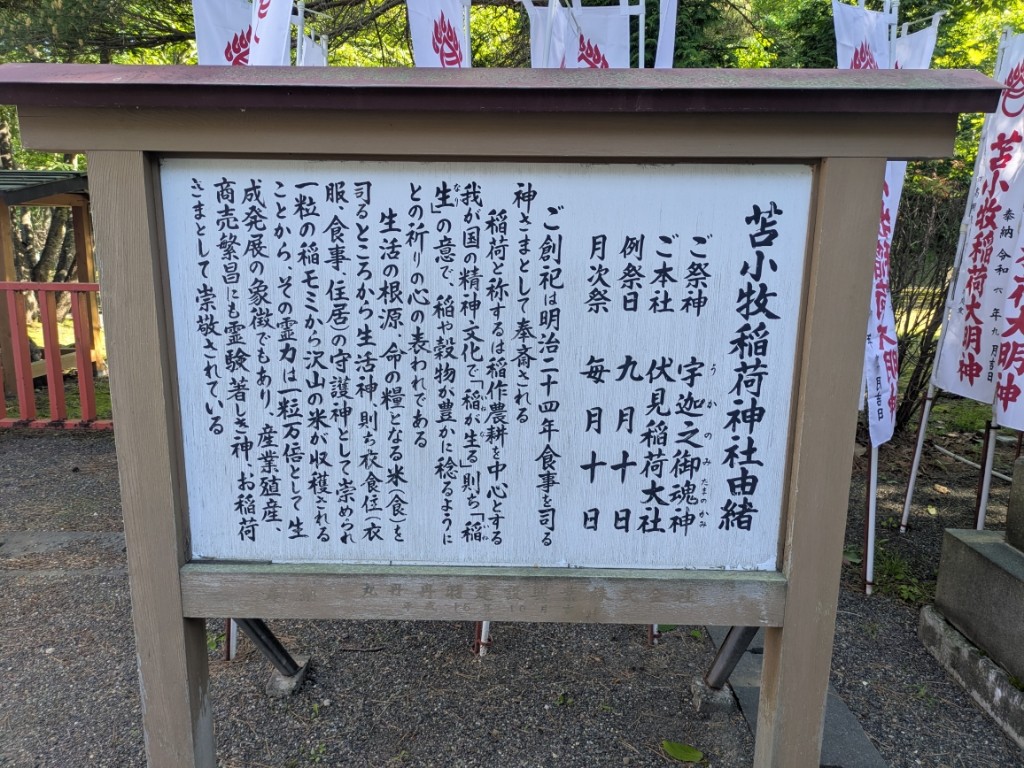 苫小牧稲荷神社由緒
ご祭神 宇迦之御魂神
うかのみたまのかみ
ご本社 伏見稲荷大社
例祭日 九月十日
月次祭 毎月十日
ご創祀は明治二十四年食事を司る
神さまとして奉斎される
稲荷と称するは稲作農耕を中心とする
我が国の精神・文化で「稲が生る」則ち「稲
生」の意で、稲や穀物が豊かに稔るように
との祈りの心の表われである
生活の根源、命の糧となる米(食)を
司るところから生活神、則ち衣食住(衣
服、食事、住居)の守護神として崇められ
一粒の稲モミから沢山の米が収穫される
ことから、その霊力は一粒万倍として生
成発展の象徴でもあり、産業殖産、
商売繁昌にも霊験著しき神、お稲荷
さまとして崇敬されている
苫小牧稲荷大明神
奉納 令和六年九月吉日